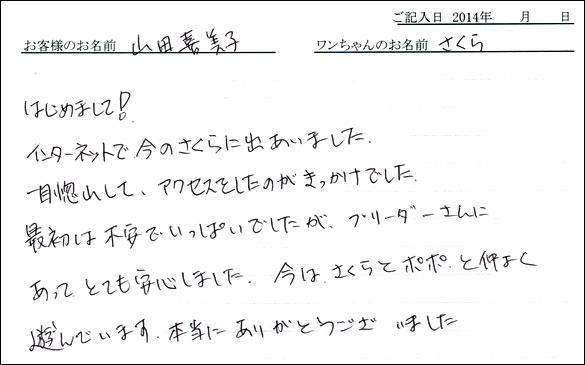 ご記入日 2014年 月 日
お客様のお名前 山田喜美子 ワンちゃんのお名前 さくら
はじめまして!
インターネットで今のさくらに出あいました.
一目惚れして、アクセスをしたのがきっかけでした.
最初は不安でいっぱいでしたが、ブリーダーさんに
あって、とても安心しました. 今は、さくらとポポと仲よく
遊んでいます. 本当にありがとうございました